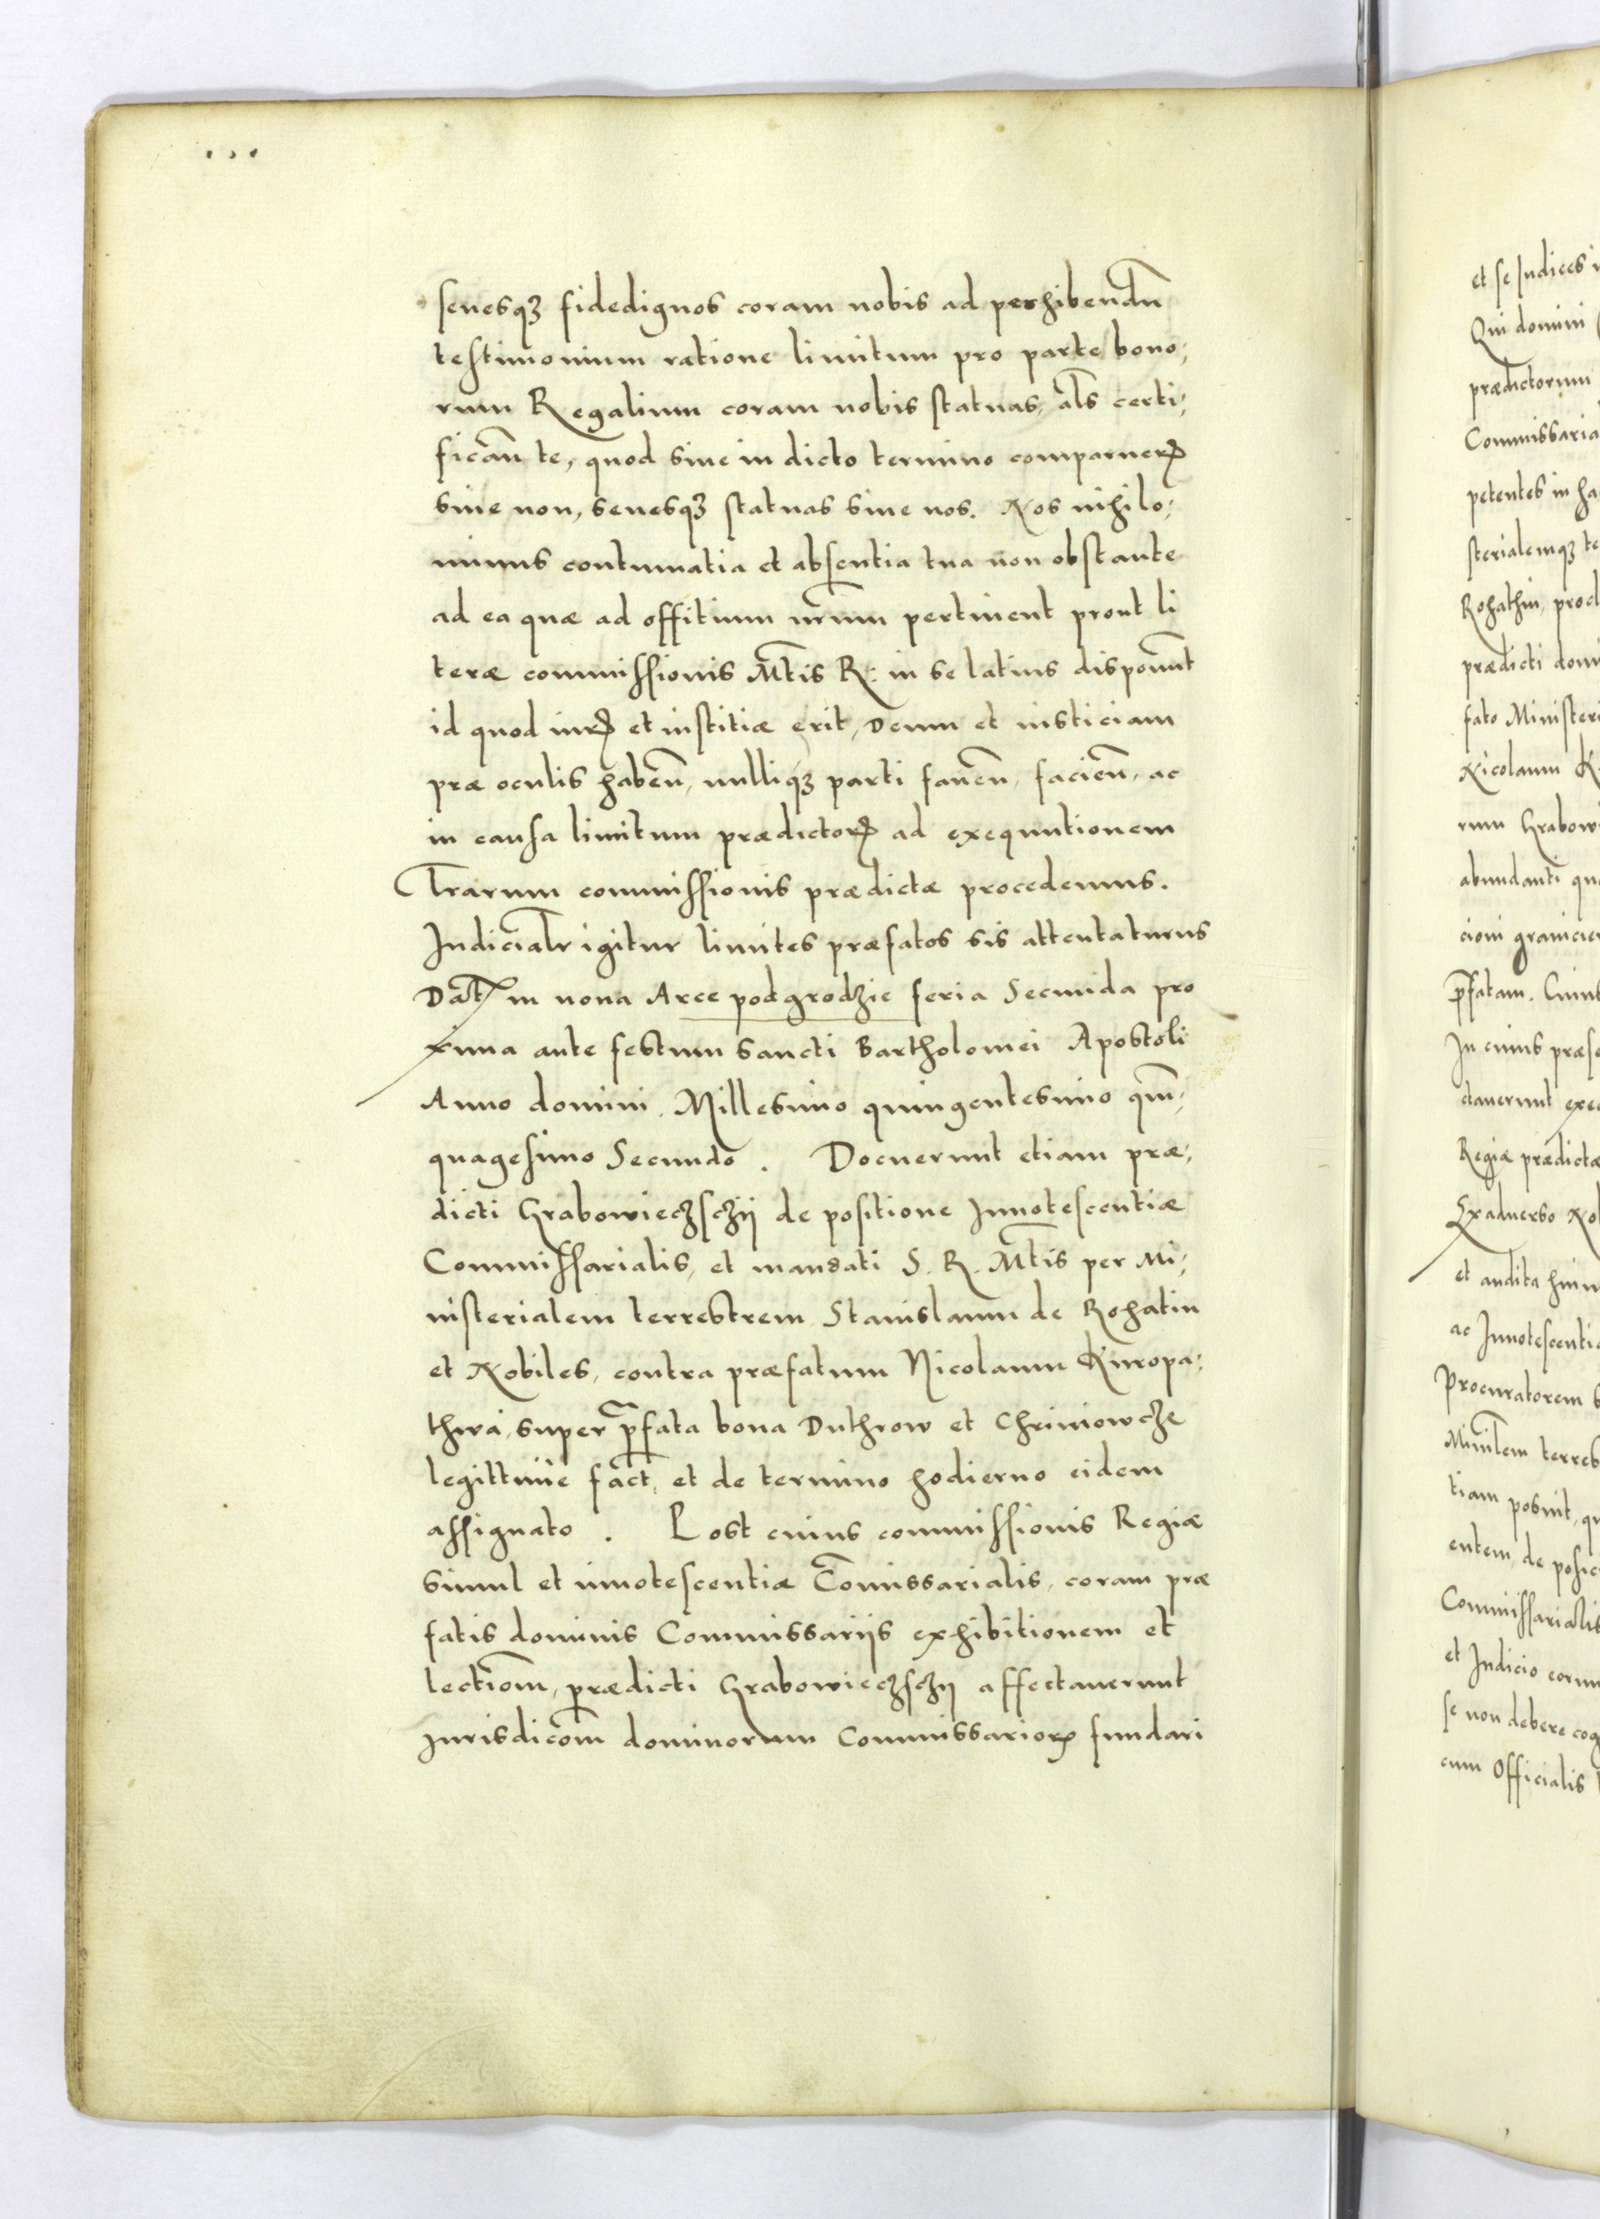 senesqꝫ fidedignos coram nobis ad perhibendū
testimonium ratione limitum pro parte bono;
rum Regalium coram nobis statuas, als̄ certi;
ficān te, quod siue in dicto termino comparueꝝ
siue non, senesqꝫ statuas siue nos. Nos nihilo;
minus contumatia et absentia tua non obstante
ad ea quæ ad offitium nr̄um pertinent prout li
teræ commissionis Mt̄is R: in se latius disponūt
id quod iurꝭ et iustitiæ erit, Deum et iusticiam
præ oculis habeñ, nulliqꝫ parti faueñ, facieñ, ac
in causa limitum prædictoꝝ ad exequutionem
Lr̄arum commissionis prædictæ procedemus.
Iudicialr̄ igitur limites præfatos sis attentaturus
Dat̄ in noua Arce podgrodzie feria Secunda pro
xima ante festum Sancti Bartholomei Apostoli
Anno domini. Millesimo quingentesimo qm̄;
quagesimo Secundo. Docuerunt etiam præ;
dicti Grabowieczsczij de positione Innotescentiæ
Commissarialis, et mandati S. R. Mt̄is per Mi;
nisterialem terrestrem Stanislaum de Rohatin
et Nobiles, contra præfatum Nicolaum Kuropa;
thwa, super p̄fata bona Duthrow et Chriniowcze
legittime fact̄, et de termino hodierno eidem
assignato. Post cuius commissionis Regiæ
simul et innotescentiæ Com̄issarialis, coram præ
fatis dominis Commissariis exhibitionem et
lectiom̄, prædicti Grabowieczsczij affectauerunt
Iurisdicōm dominorum Commissarioꝝ fundari
et se Iudices
Qui domini
prædictorum
Commissaria
petentes in ha
sterialemqꝫ te
Rohathin, prod
prædicti domi
fato Ministeri
Nicolaum K
rum Grabow
abundanti qu
cioni granicie
p̄fatam. Cuius
In cuius præse
ctauerunt exe
Regiæ prædictæ
Exaduerso No
et audita huiu
ac Innotescenti
Procuratorem s
Minist̄lem terres
tiam posuit, qu
entem, de posic
Commissarialis
et Iudicio eorum
se non debere cog
cum Officialis